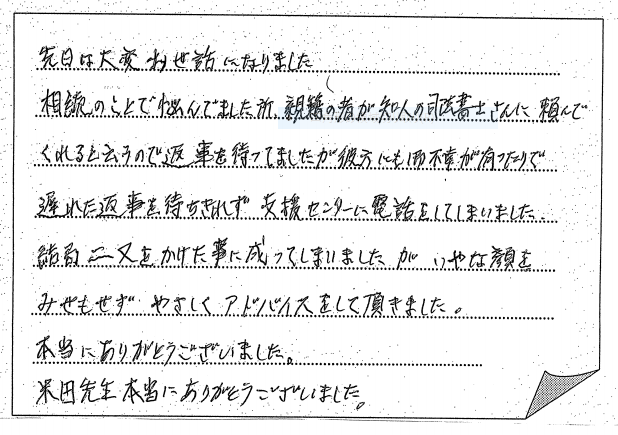 先日は大変お世話になりました
相続のことで悩んでました所、親籍の者が知人の司法書士さんに頼んで
くれると云うので返事を待ってましたが彼方にも御不幸が有ったりで
遅れた返事を待ちきれず 支援センターに電話をしてしまいました
結局 二又をかけた事に成ってしまいました が いやな顔を
みせもせず やさしく アドバイスをして頂きました。
本当にありがとうございました。
米田先生 本当にありがとうございました。